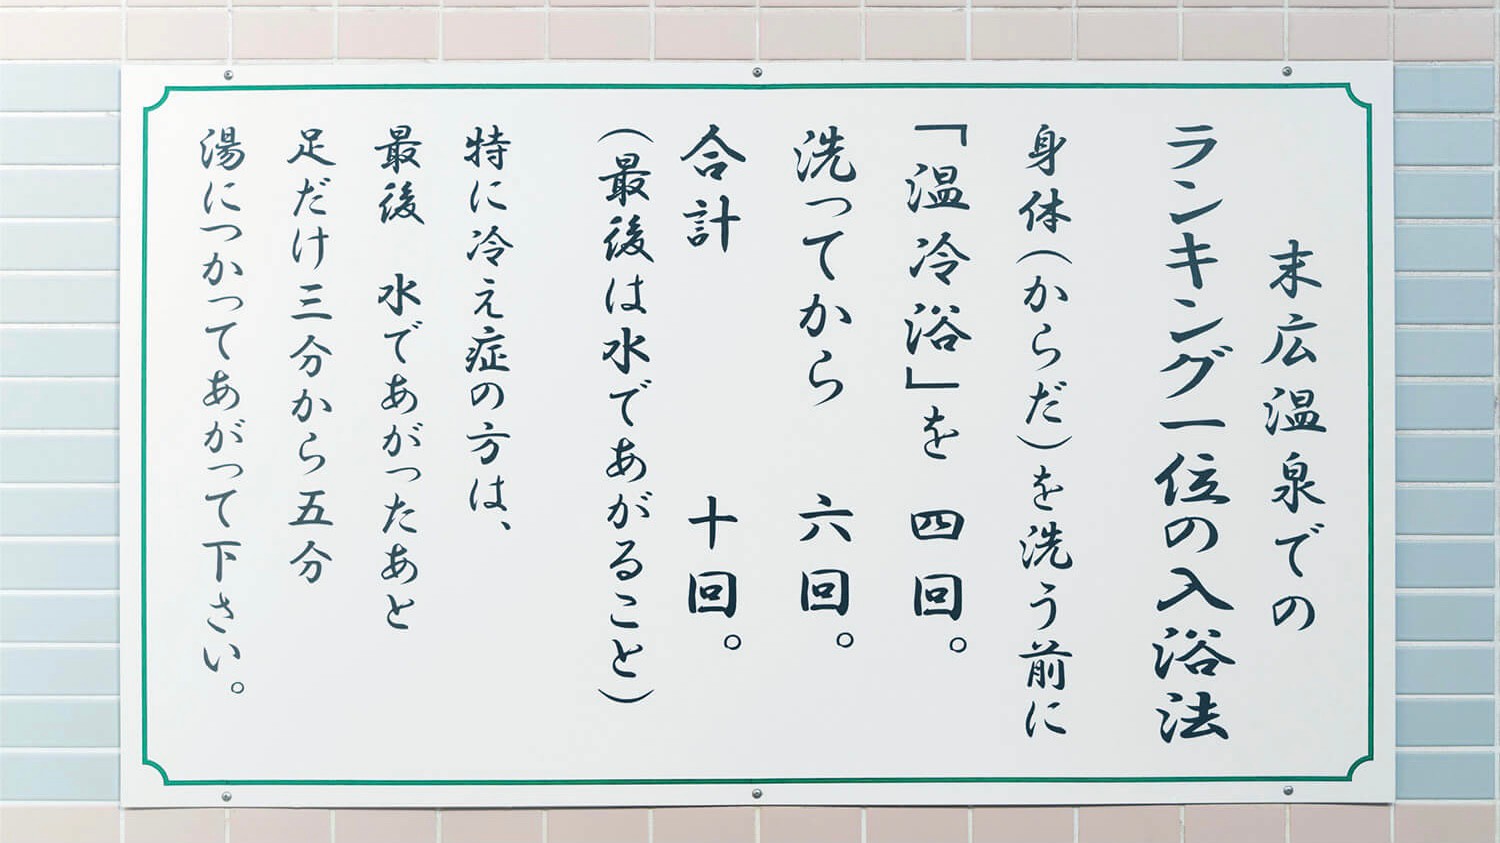 末広温泉での
ランキング一位の入浴法
身体(からだ)を洗う前に
「温冷浴」を 四回。
洗ってから 六回。
合計 十回。
(最後は水であがること)
特に冷え症の方は、
最後 水であがったあと
足だけ三分から五分
湯につかってあがって下さい。